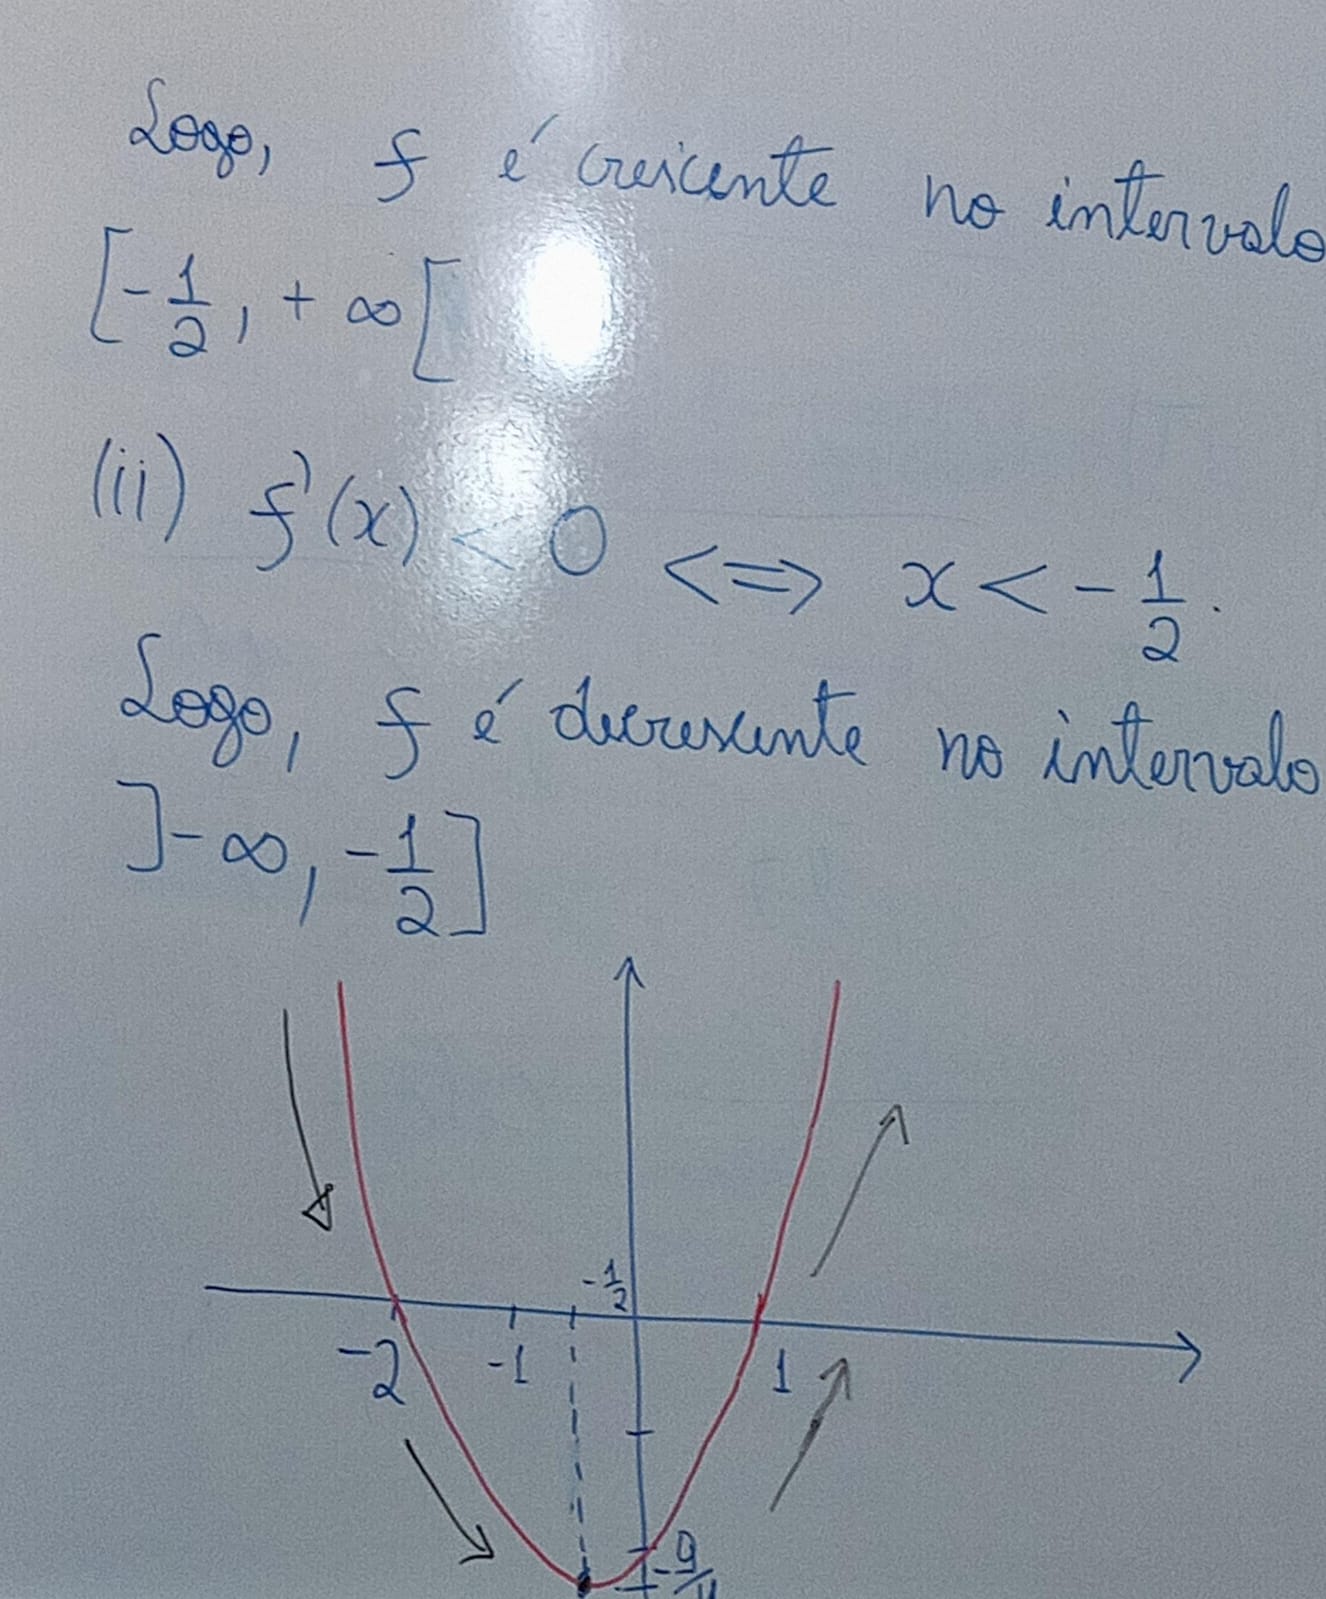 Logo, f é crescente no intervalo
[-1/2, +∞[
(ii) f'(x) < 0 <=> x < -1/2.
Logo, f é decrescente no intervalo
]-∞, -1/2]
-1/2
-2 -1 1
-9/4